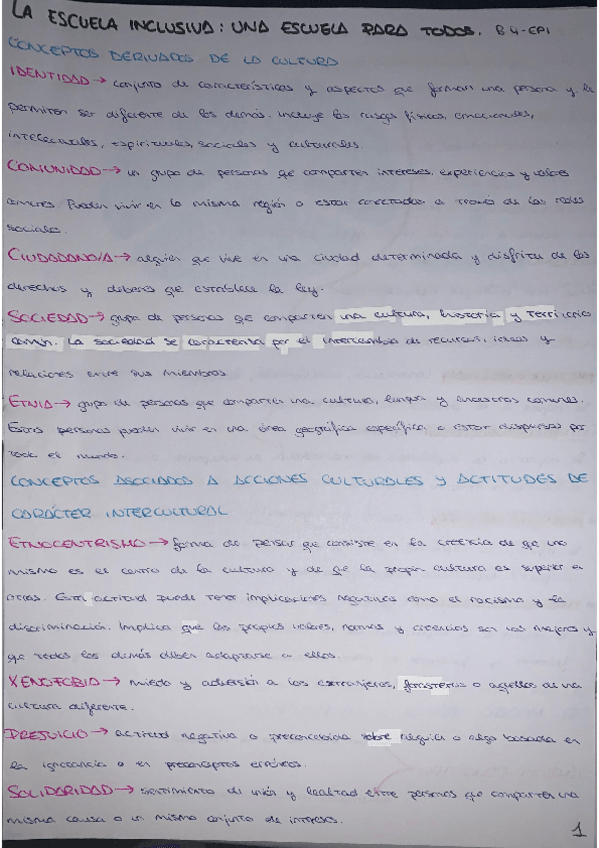 LA ESCUELA INCLUSIVA: UNA ESCUELA PARA TODOS. B4-EPI
CONCEPTOS DERIVADOS DE LA CULTURA
IDENTIDAD → conjunto de características y aspectos que forman una persona y la
permiten ser diferente de los demás. Incluye los rasgos físicos, emocionales,
intelectuales, espirituales, sociales y culturales.
COMUNIDAD → un grupo de personas qe comparten intereses, experiencias y valores
comunes. Pueden vivir en la misma región o estar conectados a través de las redes
sociales.
CIUDADANO/A → alguien que vive en una ciudad determinada y disfruta de los
derechos y deberes qe establece la ley.
SOCIEDAD → grupo de personas qe comparten una cultura, historia y territorio
común. La sociedad se caracteriza por el intercambio de recursos, ideas y
relaciones entre sus miembros.
ETNIA → grupo de personas que comparten una cultura, lengua y ancestros comunes.
Estas personas pueden vivir en una área geográfica específica o estar dispersas por
todo el mundo.
CONCEPTOS ASOCIADOS A ACCIONES CULTURALES Y ACTITUDES DE
CARÁCTER INTERCULTURAL
ETNOCENTRISMO → forma de pensar que consiste en la creencia de qe uno
mismo es el centro de la cultura y de qe la propia cultura es superior a
otras. Esta actitud puede tener implicaciones negativas como el racismo y la
discriminación. Implica que los propios valores, normas y creencias son los mejores y
qe todos los demás deben adaptarse a ellos.
XENOFOBIA → miedo y adversión a los extranjeros, forasteros o aquellos de una
cultura diferente.
PREJUICIO → actitud negativa o preconcebida sobre alguien o algo basada en
la ignorancia o en preconceptos erróneos.
SOLIDARIDAD → sentimiento de unión y lealtad entre personas que comparten una
misma causa o un mismo conjunto de intereses.
1